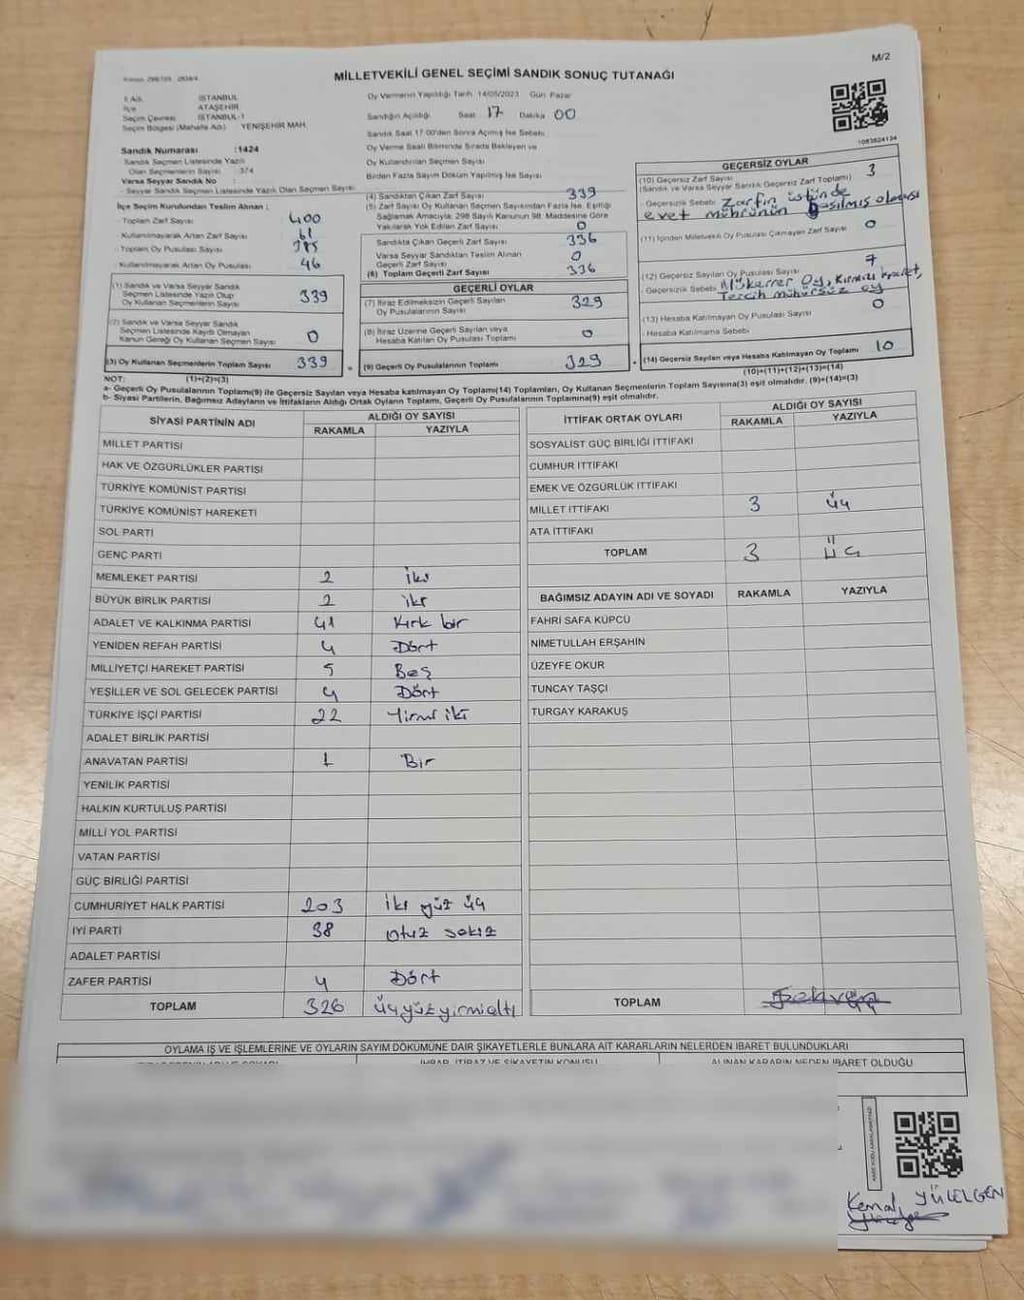 M/2
MİLLETVEKİLİ GENEL SEÇİMİ SANDIK SONUÇ TUTANAĞI
İl Adı : İSTANBUL
İlçe : ATAŞEHİR
Seçim Çevresi : İSTANBUL-1
Seçim Bölgesi (Mahalle Adı) : YENİŞEHİR MAH.
Oy Vermenin Yapıldığı Tarih 14/05/2023 Gün Pazar
Sandığın Açıldığı Saat 17 Dakika 00
Sandık Saat 17:00'den Sonra Açılmış İse Sebebi
Oy Verme Saati Bitiminde Sırada Bekleyen ve
Oy Kullandırılan Seçmen Sayısı
Birden Fazla Sayım Döküm Yapılmış İse Sayısı
1083824134
Sandık Numarası :1424
Sandık Seçmen Listesinde Yazılı
Olan Seçmenlerin Sayısı : 374
Varsa Seyyar Sandık No :
- Seyyar Sandık Seçmen Listesinde Yazılı Olan Seçmen Sayısı:
İlçe Seçim Kurulundan Teslim Alınan :
- Toplam Zarf Sayısı 400
- Kullanılmayarak Artan Zarf Sayısı 61
- Toplam Oy Pusulası Sayısı 385
- Kullanılmayarak Artan Oy Pusulası 46
(1) Sandık ve Varsa Seyyar Sandık
Seçmen Listesinde Yazılı Olup
Oy Kullanan Seçmenlerin Sayısı 339
(2) Sandık ve Varsa Seyyar Sandık
Seçmen Listesinde Kayıtlı Olmayan
Kanun Gereği Oy Kullanan Seçmen Sayısı 0
(3) Oy Kullanan Seçmenlerin Toplam Sayısı 339
(1)+(2)=(3)
(4) Sandıktan Çıkan Zarf Sayısı 339
(5) Zarf Sayısı Oy Kullanan Seçmen Sayısından Fazla İse, Eşitliği
Sağlamak Amacıyla; 298 Sayılı Kanunun 98. Maddesine Göre
Yakılarak Yok Edilen Zarf Sayısı 0
Sandıkta Çıkan Geçerli Zarf Sayısı 336
Varsa Seyyar Sandıktan Teslim Alınan
Geçerli Zarf Sayısı 0
(6) Toplam Geçerli Zarf Sayısı 336
GEÇERLİ OYLAR
(7) İtiraz Edilmeksizin Geçerli Sayılan
Oy Pusulalarının Sayısı 329
(8) İtiraz Üzerine Geçerli Sayılan veya
Hesaba Katılan Oy Pusulaları Toplamı 0
(9) Geçerli Oy Pusulalarının Toplamı 329
GEÇERSİZ OYLAR
(10) Geçersiz Zarf Sayısı 3
(Sandık ve Varsa Seyyar Sandık Geçersiz Zarf Toplamı)
- Geçersizlik Sebebi Zarfın üstünde
evet mührünün basılmış olması
(11) İçinden Milletvekili Oy Pusulası Çıkmayan Zarf Sayısı 0
(12) Geçersiz Sayılan Oy Pusulası Sayısı 7
- Geçersizlik Sebebi Mükerrer Oy,
Tercih mühürsüz oy
(13) Hesaba Katılmayan Oy Pusulası Sayısı 0
- Hesaba Katılmama Sebebi
(14) Geçersiz Sayılan veya Hesaba Katılmayan Oy Toplamı 10
(10)+(11)+(12)+(13)=(14)
NOT:
a- Geçerli Oy Pusulalarının Toplamı(9) ile Geçersiz Sayılan veya Hesaba katılmayan Oy Toplamı(14) Toplamları, Oy Kullanan Seçmenlerin Toplam Sayısına(3) eşit olmalıdır. (9)+(14)=(3)
b- Siyasi Partilerin, Bağımsız Adayların ve İttifakların Aldığı Ortak Oyların Toplamı, Geçerli Oy Pusulalarının Toplamına(9) eşit olmalıdır.
SİYASİ PARTİNİN ADI ALDIĞI OY SAYISI
RAKAMLA YAZIYLA
MİLLET PARTİSİ
HAK VE ÖZGÜRLÜKLER PARTİSİ
TÜRKİYE KOMÜNİST PARTİSİ
TÜRKİYE KOMÜNİST HAREKETİ
SOL PARTİ
GENÇ PARTİ
MEMLEKET PARTİSİ 2 iki
BÜYÜK BİRLİK PARTİSİ 2 iki
ADALET VE KALKINMA PARTİSİ 41 Kırk bir
YENİDEN REFAH PARTİSİ 4 Dört
MİLLİYETÇİ HAREKET PARTİSİ 5 Beş
YEŞİLLER VE SOL GELECEK PARTİSİ 4 Dört
TÜRKİYE İŞÇİ PARTİSİ 22 Yirmi iki
ADALET BİRLİK PARTİSİ
ANAVATAN PARTİSİ 1 Bir
YENİLİK PARTİSİ
HALKIN KURTULUŞ PARTİSİ
MİLLİ YOL PARTİSİ
VATAN PARTİSİ
GÜÇ BİRLİĞİ PARTİSİ
CUMHURİYET HALK PARTİSİ 203 iki yüz üç
İYİ PARTİ 38 otuz sekiz
ADALET PARTİSİ
ZAFER PARTİSİ 4 Dört
TOPLAM 326 üçyüzyirmialtı
İTTİFAK ORTAK OYLARI ALDIĞI OY SAYISI
RAKAMLA YAZIYLA
SOSYALİST GÜÇ BİRLİĞİ İTTİFAKI
CUMHUR İTTİFAKI
EMEK VE ÖZGÜRLÜK İTTİFAKI
MİLLET İTTİFAKI 3 üç
ATA İTTİFAKI
TOPLAM 3 üç
BAĞIMSIZ ADAYIN ADI VE SOYADI RAKAMLA YAZIYLA
FAHRİ SAFA KÜPCÜ
NİMETULLAH ERŞAHİN
ÜZEYFE OKUR
TUNCAY TAŞÇI
TURGAY KARAKUŞ
TOPLAM
OYLAMA İŞ VE İŞLEMLERİNE VE OYLARIN SAYIM DÖKÜMÜNE DAİR ŞİKAYETLERLE BUNLARA AİT KARARLARIN NELERDEN İBARET BULUNDUKLARI
İHBAR, İTİRAZ VE ŞİKAYETİN KONUSU ALINAN KARARIN NEDEN İBARET OLDUĞU
Kemal YÜLELGEN